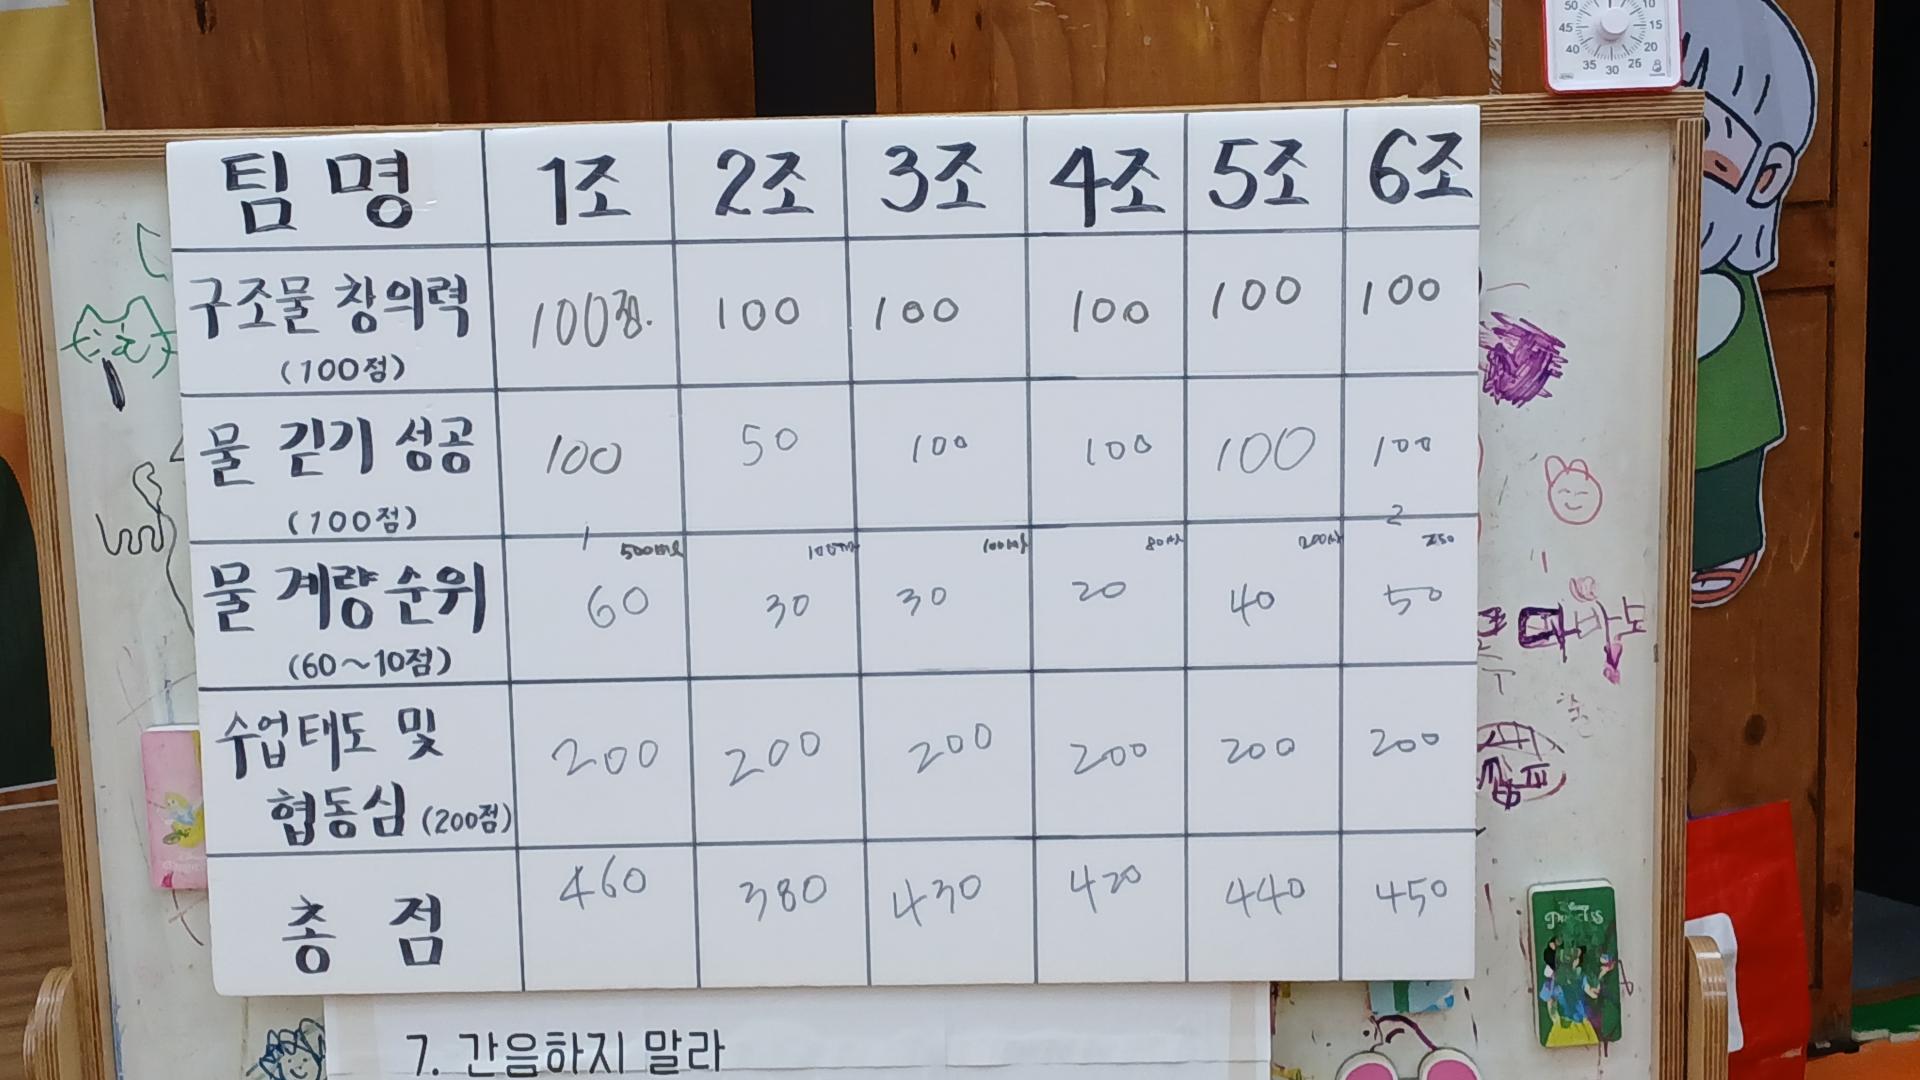 50 10
45 15
40 20
35 30 25
팀 명 1조 2조 3조 4조 5조 6조
구조물 창의력 100점. 100 100 100 100 100
(100점)
물 긷기 성공 100 50 100 100 100 100
(100점)
1 2
500ml 200 250
물 계량 순위 60 30 30 20 40 50
(60~10점)
수업태도 및
협동심 (200점) 200 200 200 200 200 200
총 점 460 380 430 420 440 450
7. 간음하지 말라